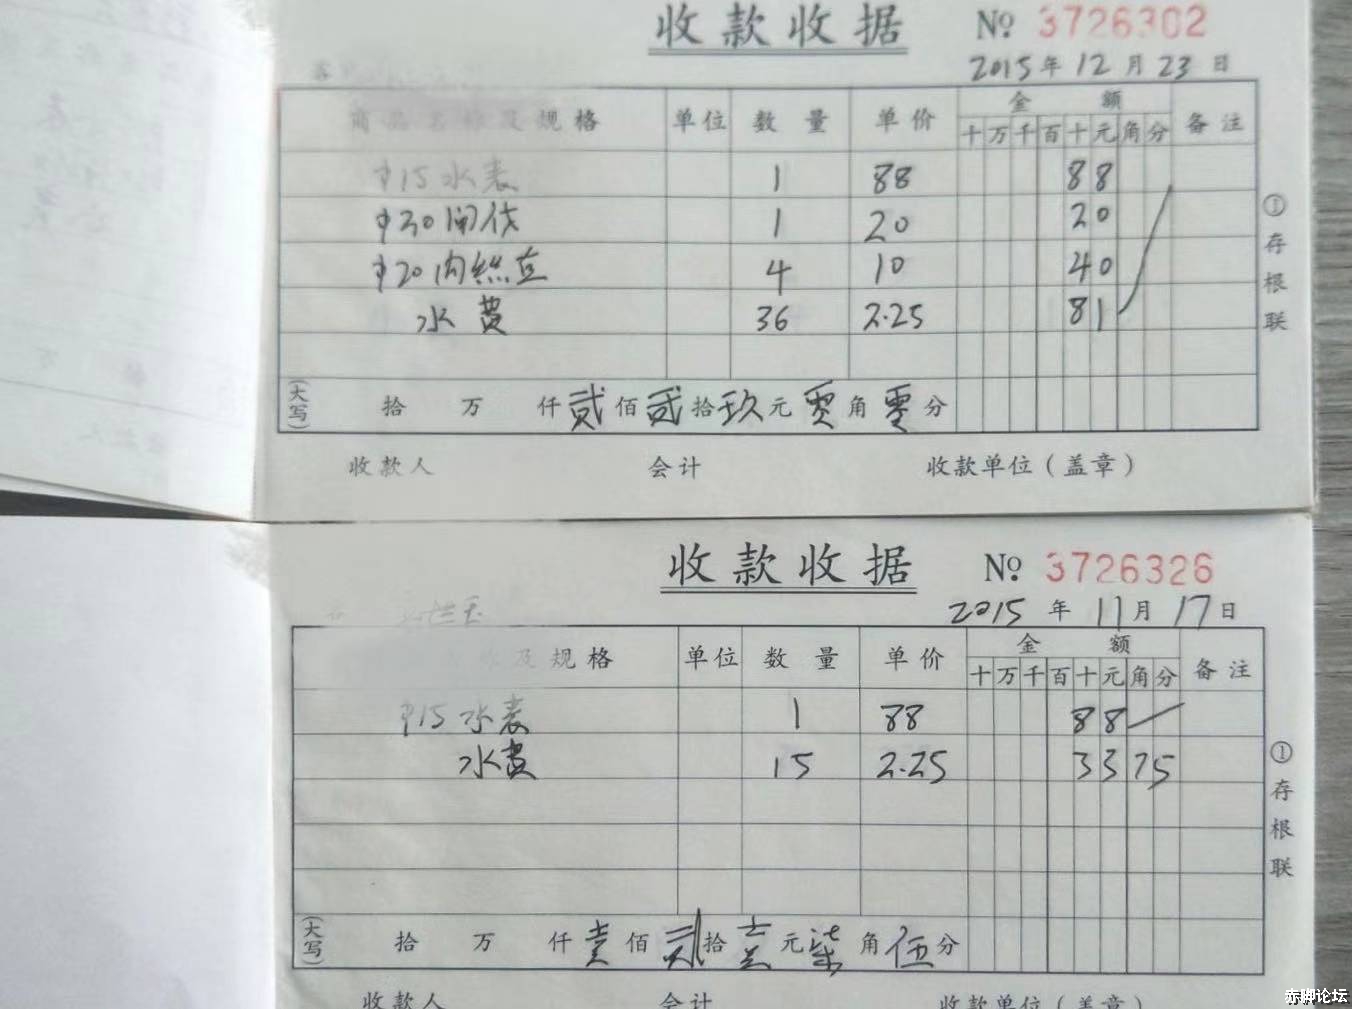 收款收据 № 3726302
2015年12月23日
商品名称及规格 单位 数量 单价 金额 备注
十万千百十元角分
φ15水表 1 88 88
φ20闸伐 1 20 20
φ20内丝直 4 10 40
水费 36 2.25 81
(大写) 拾 万 仟贰佰贰拾玖元零角零分
收款人 会计 收款单位(盖章)
①存根联
收款收据 № 3726326
2015年11月17日
及规格 单位 数量 单价 金额 备注
十万千百十元角分
φ15水表 1 88 88
水费 15 2.25 33 75
(大写) 拾 万 仟壹佰贰拾壹元柒角伍分
收款人 会计 收款单位(盖章)
①存根联
赤脚论坛